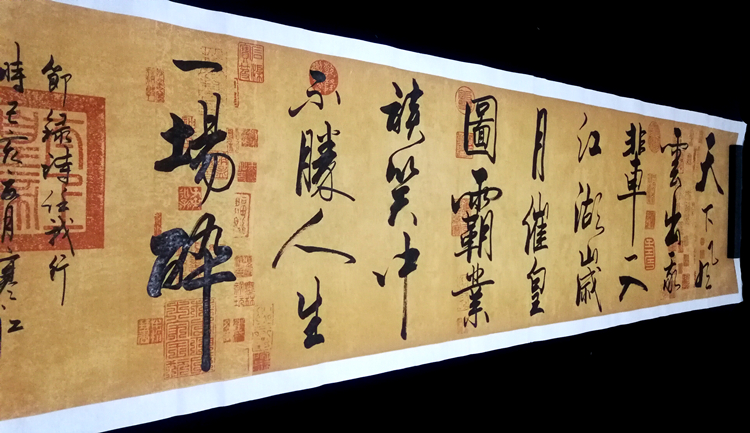 天下風
雲出我
輩一入
江湖歲
月催皇
圖霸業
談笑中
不勝人生
一場醉
節錄詩任我行
時己亥年月寒江